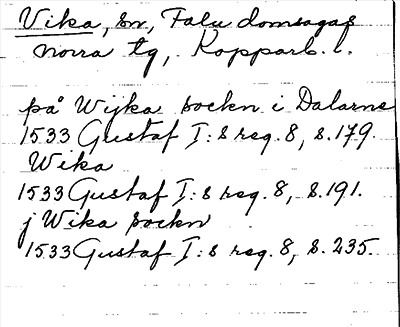 Vika, sn, Falu domsagas
norra tg, Kopparb. l.
på Wijka sockn i Dalarne
1533 Gustaf I:s reg. 8, s. 179.
Wika
1533 Gustaf I:s reg. 8, s. 191.
j Wika sockn
1533 Gustaf I:s reg. 8, s. 235.